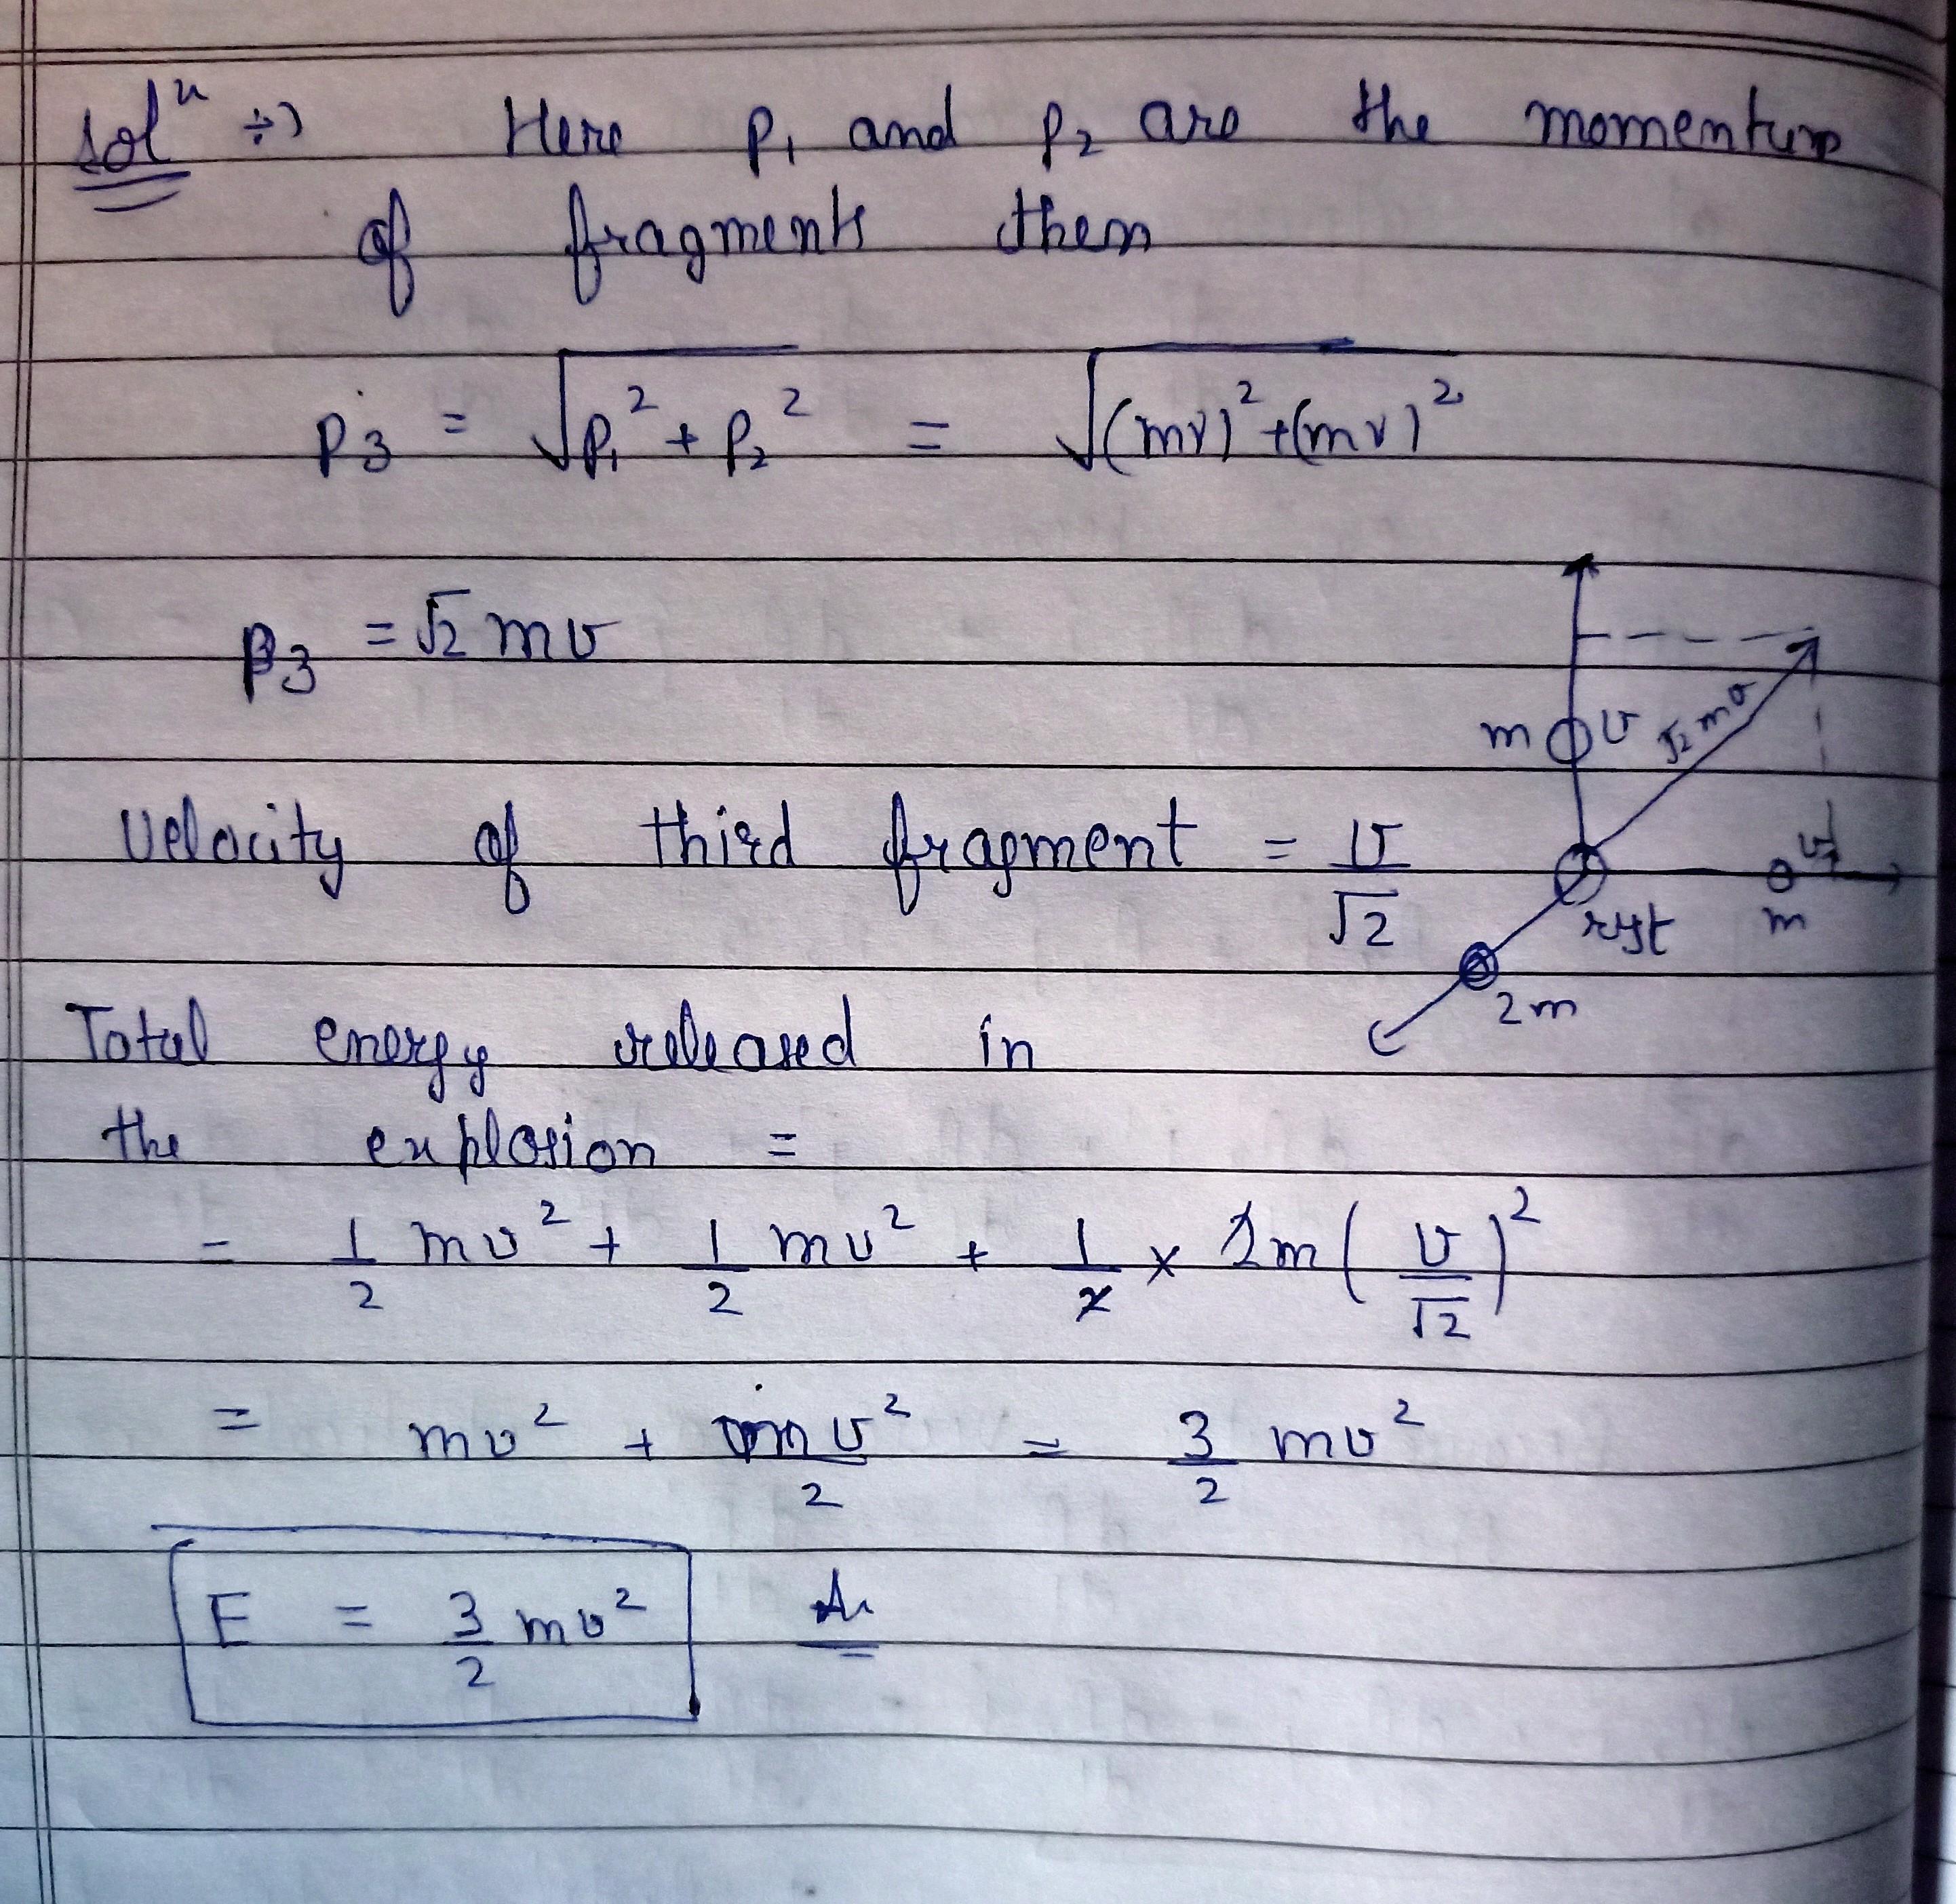 Solⁿ ÷) Here p₁ and p₂ are the momentum
of fragments then
p₃ = √(p₁² + p₂²) = √((mv)² + (mv)²)
p₃ = √2 mv
m v √2 mv
Velocity of third fragment = v/√2
v
rest m
2m
Total energy released in
the explosion =
= 1/2 mv² + 1/2 mv² + 1/2 × 2m (v/√2)²
= mv² + mv²/2 = 3/2 mv²
E = 3/2 mv² A